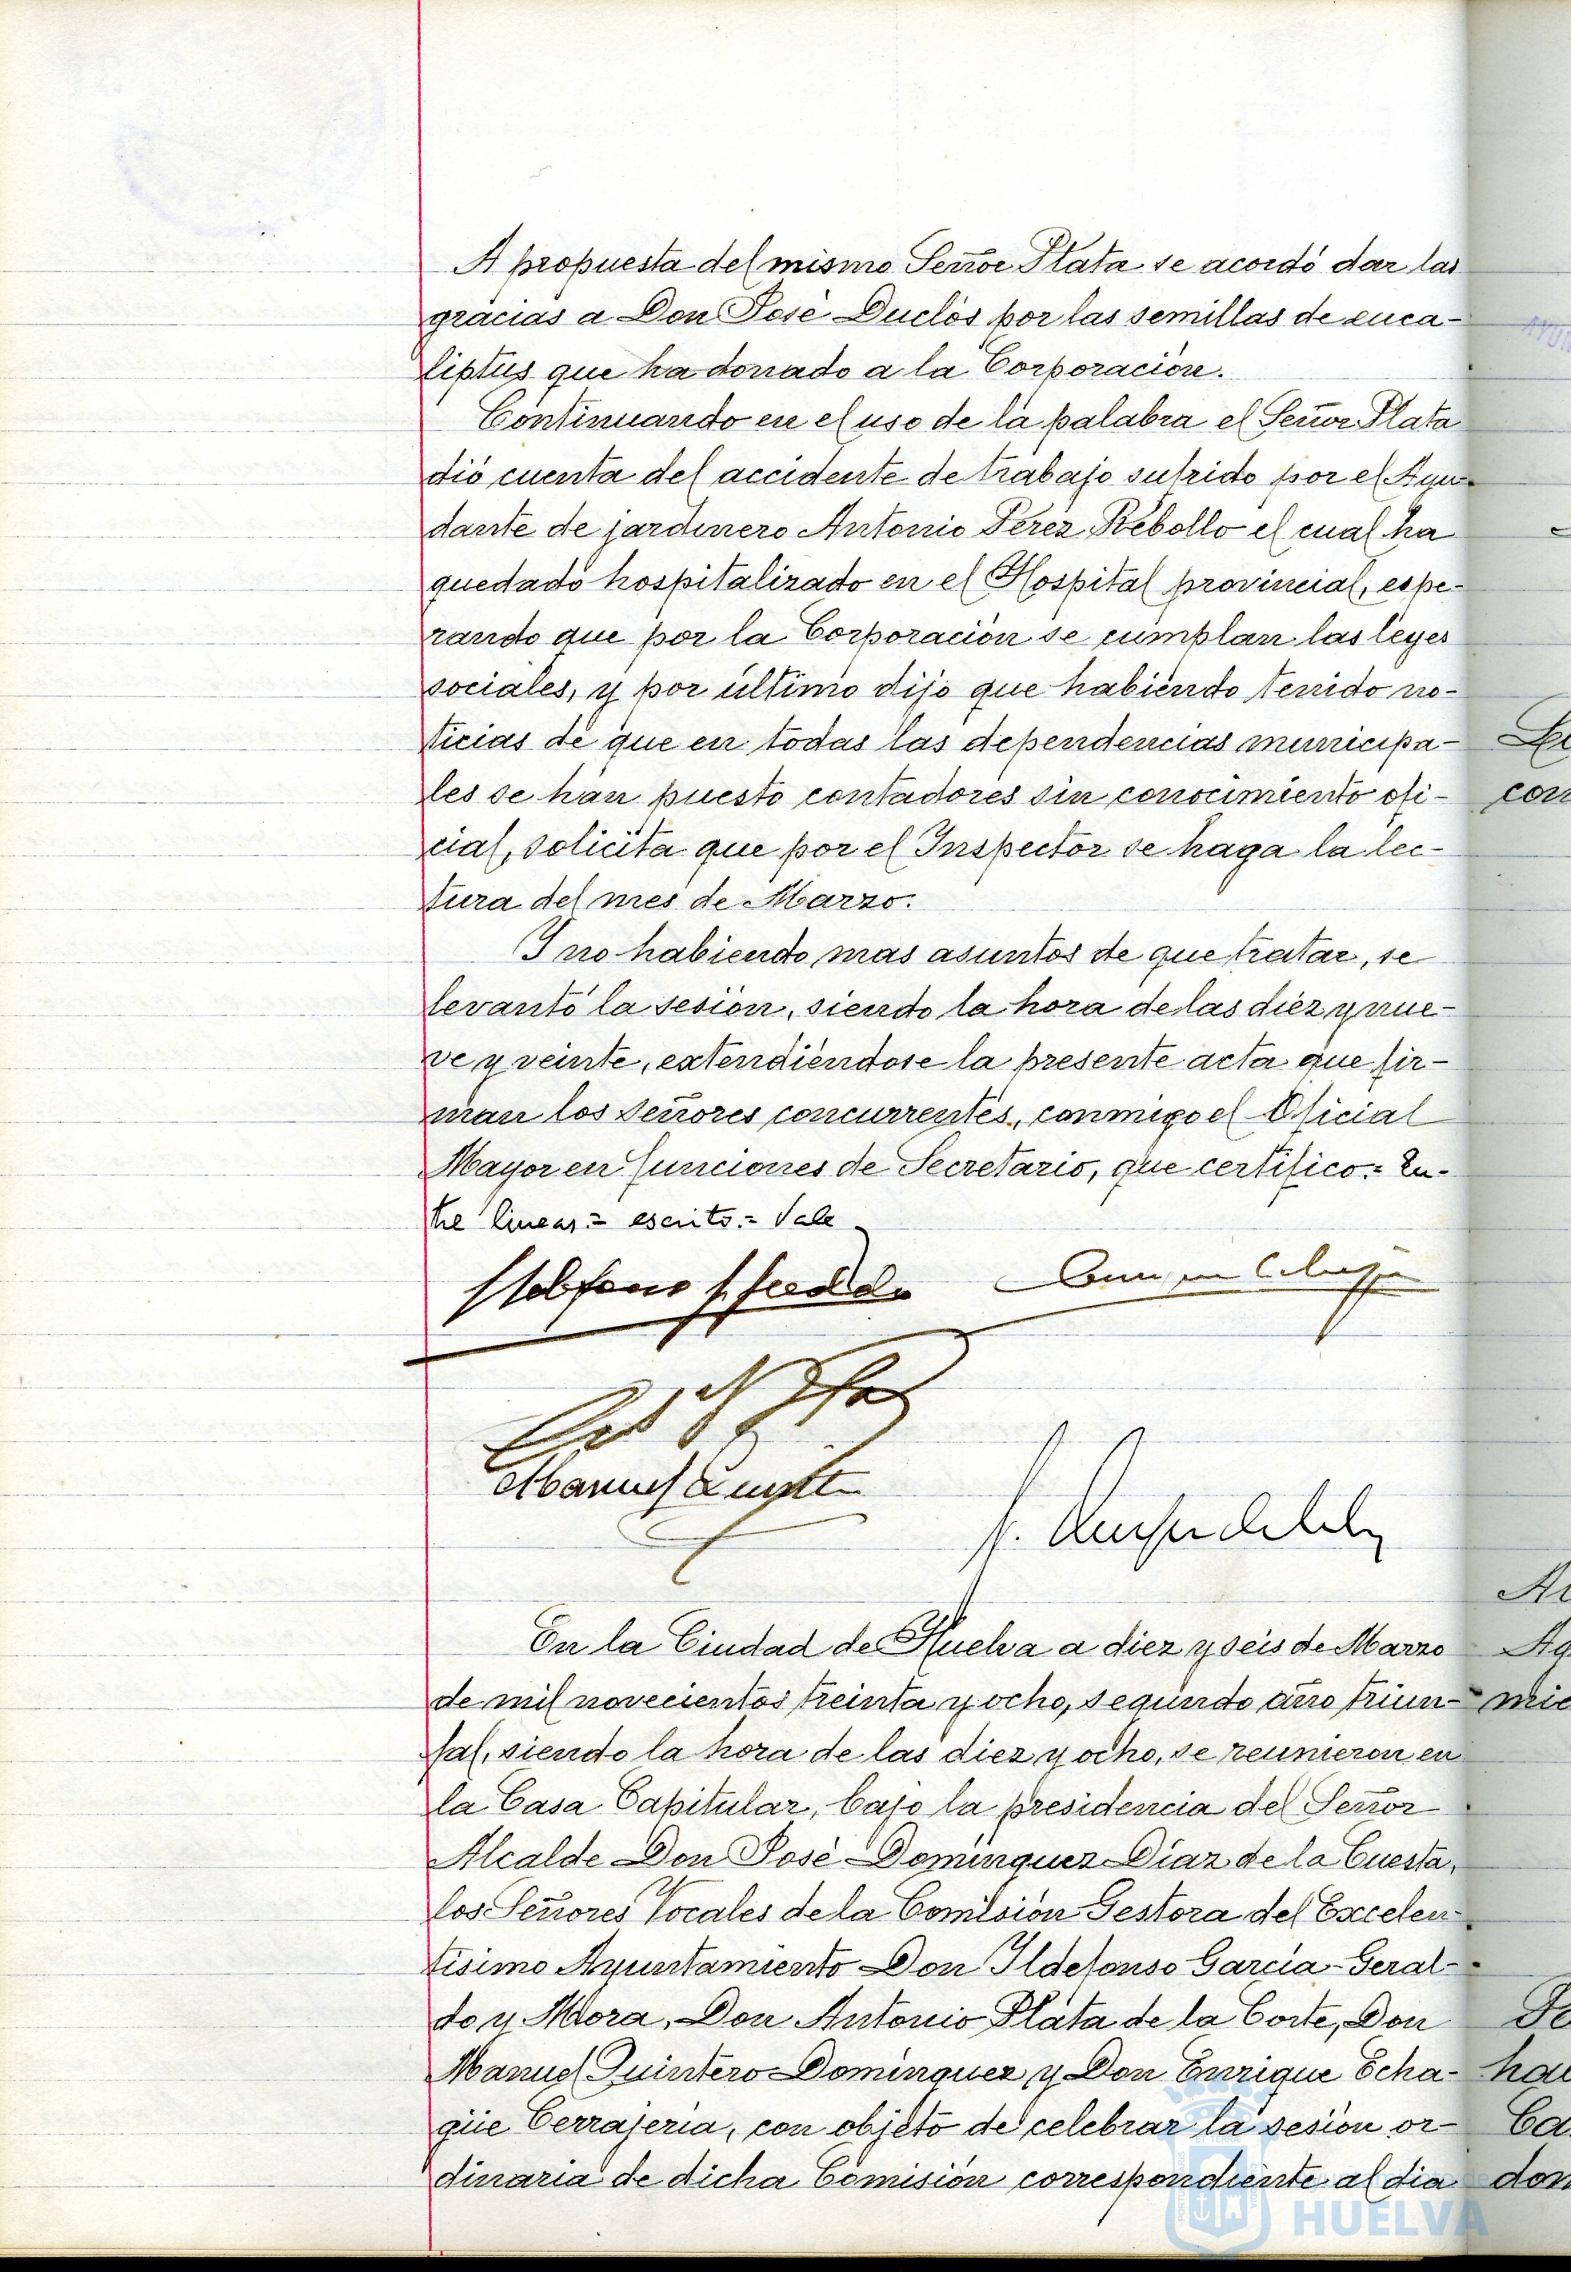 A propuesta del mismo Señor Plata se acordó dar las
gracias a Don José Duclós por las semillas de euca-
liptus que ha donado a la Corporación.
Continuando en el uso de la palabra el Señor Plata
dió cuenta del accidente de trabajo sufrido por el Ayu-
dante de jardinero Antonio Pérez Rebollo el cual ha
quedado hospitalizado en el Hospital provincial, espe-
rando que por la Corporación se cumplan las leyes
sociales, y por último dijo que habiendo tenido no-
ticias de que en todas las dependencias municipa-
les se han puesto contadores sin conocimiento ofi-
cial, solicita que por el Inspector se haga la lec-
tura del mes de Marzo.
Y no habiendo mas asuntos de que tratar, se
levantó la sesión, siendo la hora de las diez y nue-
ve y veinte, extendiéndose la presente acta que fir-
man los Señores concurrentes, conmigo el Oficial
Mayor en funciones de Secretario, que certifico.= En-
tre lineas = escrito.= Vale
Manuel Quintero
En la Ciudad de Huelva a diez y seis de Marzo
de mil novecientos treinta y ocho, segundo año triun-
fal, siendo la hora de las diez y ocho, se reunieron en
la Casa Capitular, bajo la presidencia del Señor
Alcalde Don José Dominguez Díaz de la Cuesta,
los Señores Vocales de la Comisión Gestora del Excelen-
tísimo Ayuntamiento Don Ildefonso García-Geral-
do y Mora, Don Antonio Plata de la Corte, Don
Manuel Quintero Dominguez y Don Enrique Echa-
güe Cerrajería, con objeto de celebrar la sesión or-
dinaria de dicha Comisión correspondiente al dia
HUELVA